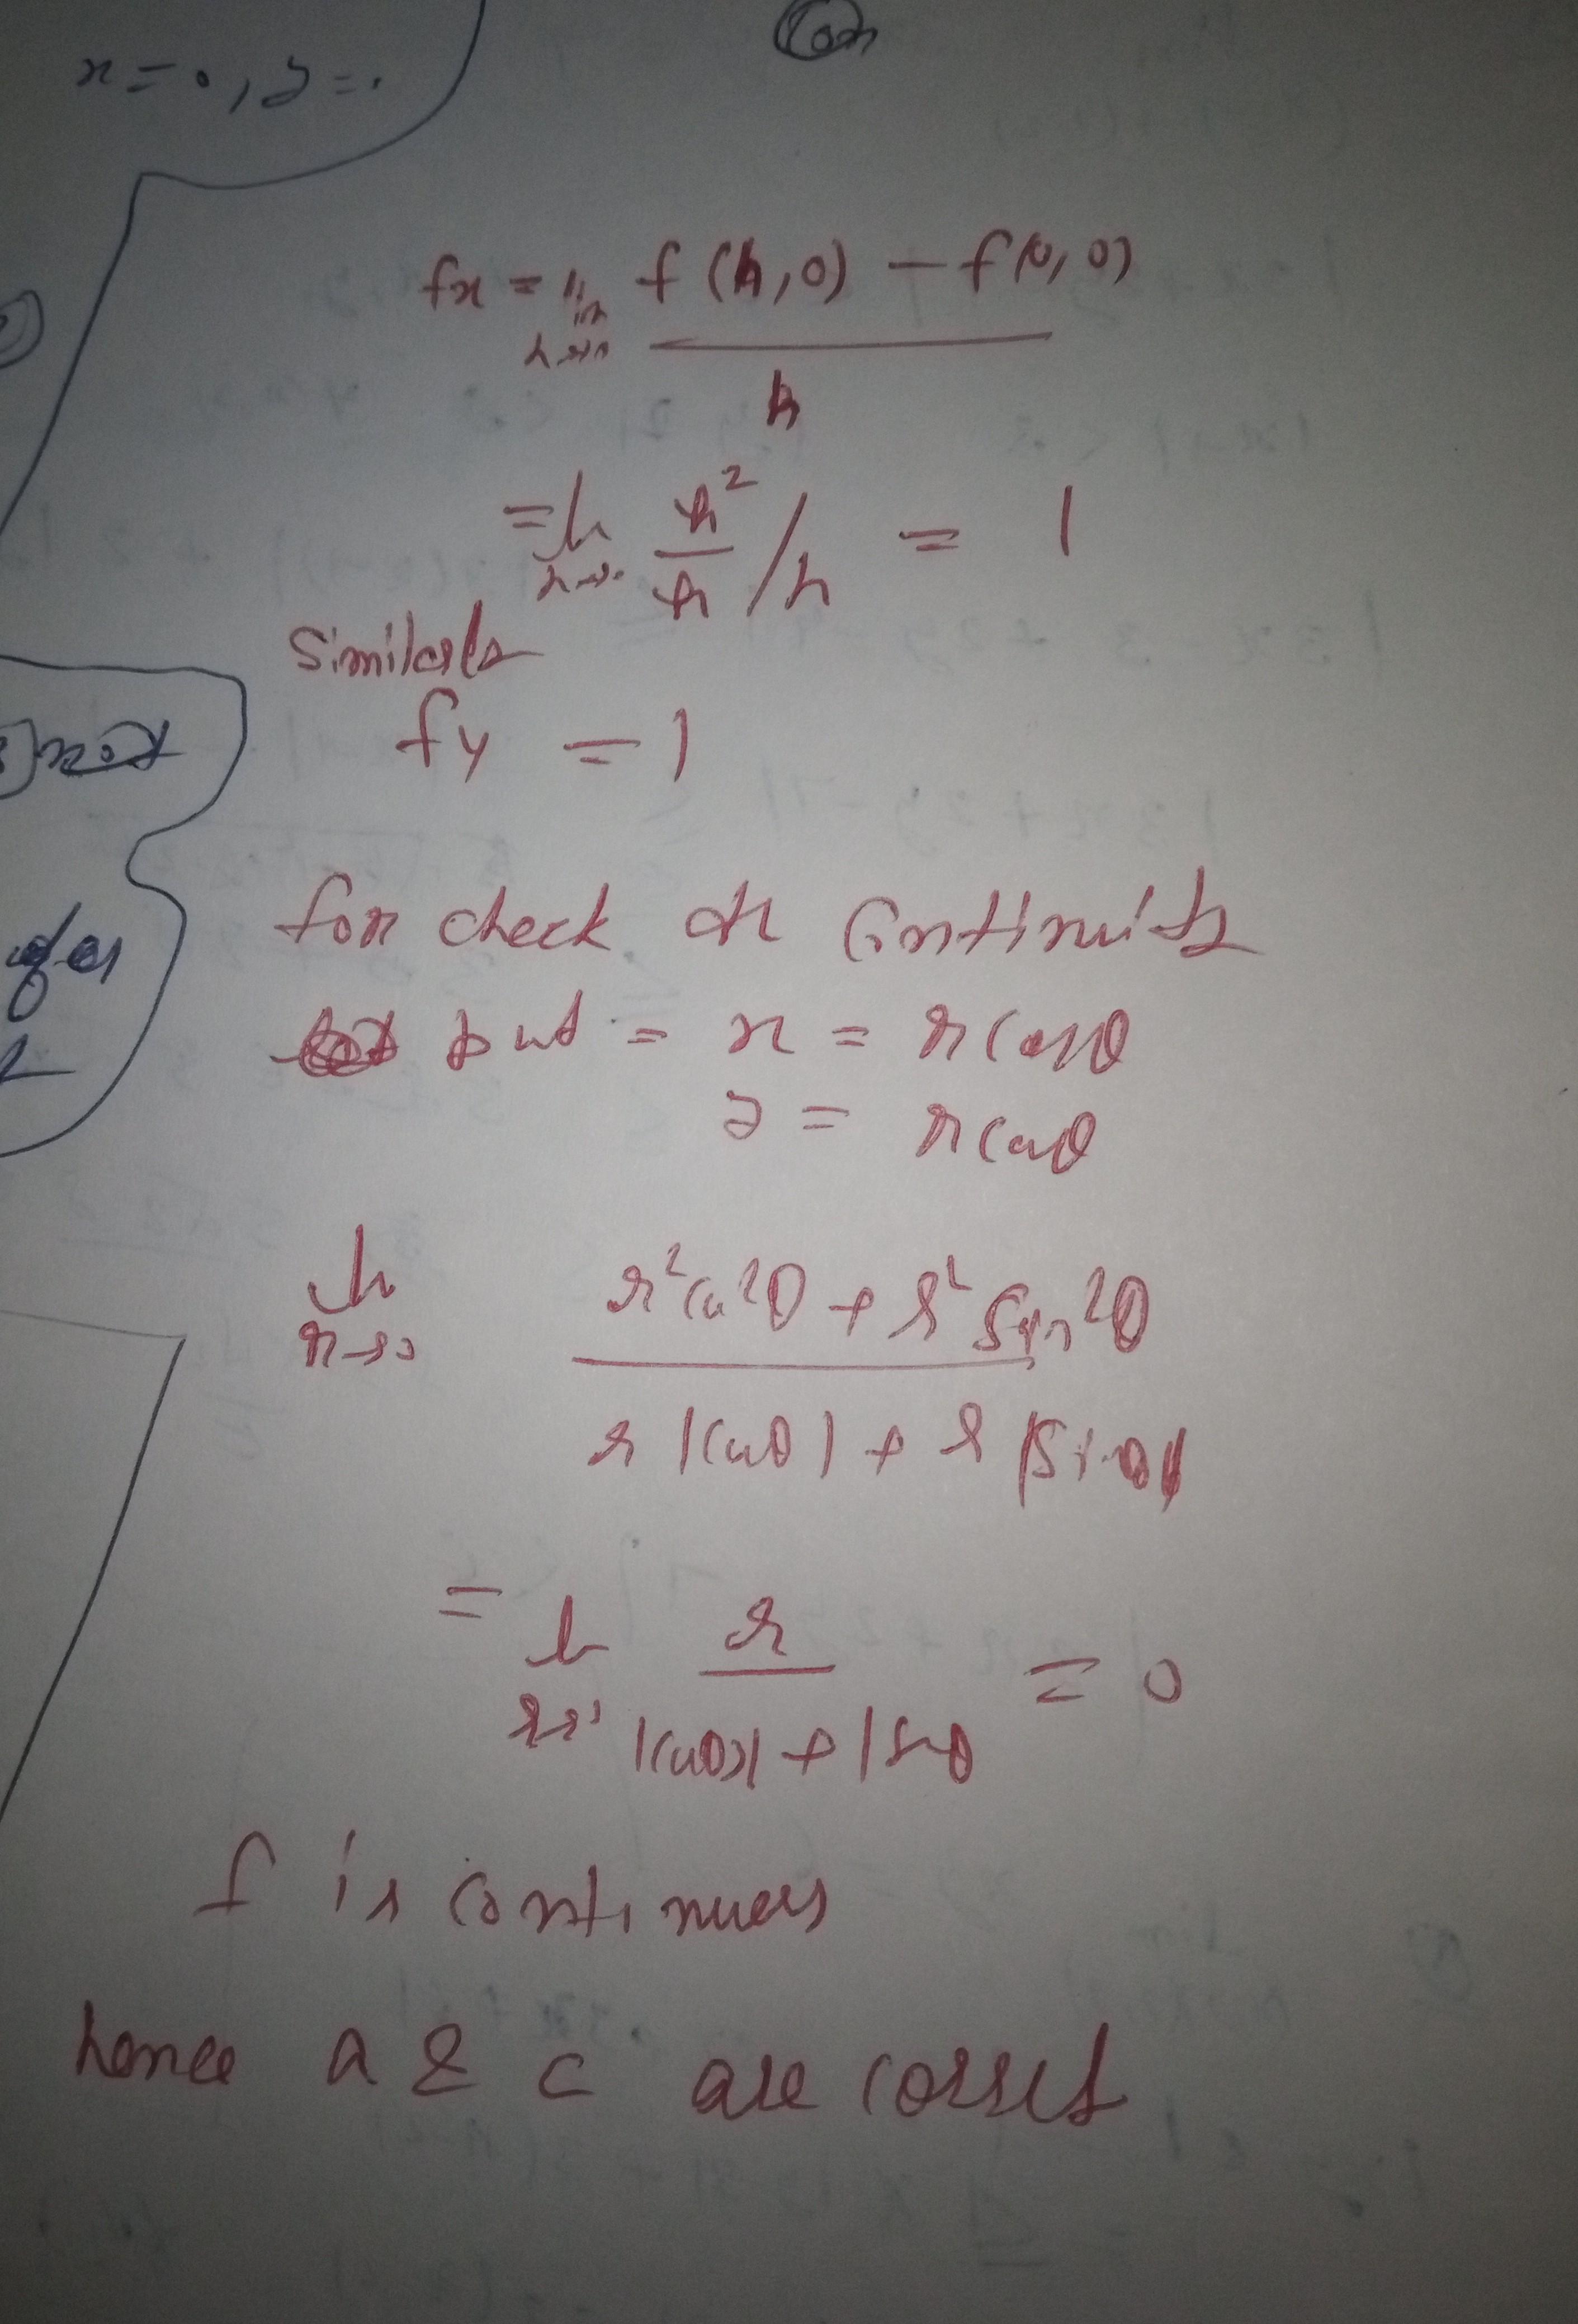 x = 0, y = 0
fx = lim f(h,0) - f(0,0)
h→0
h
= lim h²/h / h = 1
h→0
Similarly
fy = 1
not
for check of Continuity
put = x = r cosθ
y = r cosθ
lim r²cos²θ + r² Sin²θ
r→0
r |cosθ| + r |Sinθ|
= lim r = 0
r→0 |cosθ| + |sinθ
f is continuous
hence a & c are correct